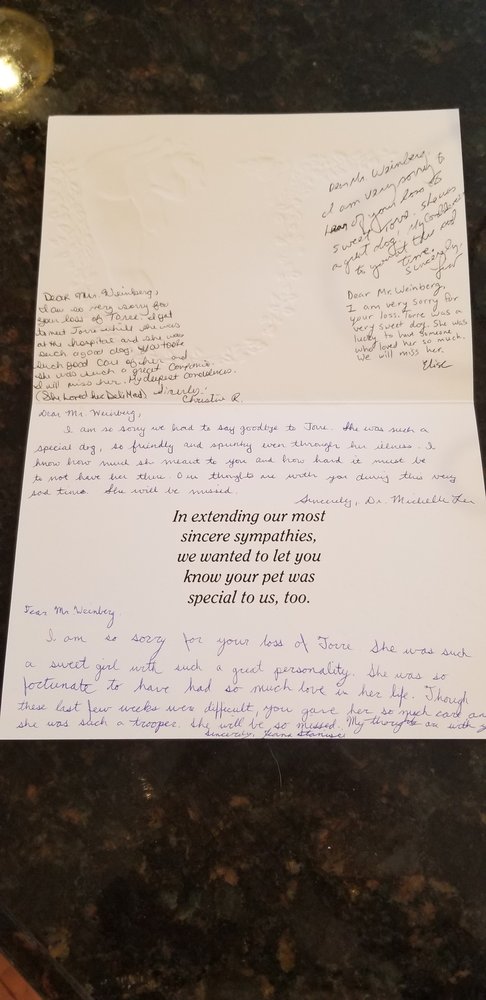 Dear Mr. Weinberg,
I am very sorry to
hear of your loss of
sweet Torre. She was
a great dog! My condolences
to you at this sad
time.
Sincerely,
Dear Mr. Weinberg,
I am very sorry for
your loss. Torre was a
very sweet dog. She was
lucky to have someone
who loved her so much.
We will miss her.
Elise
Dear Mr. Weinberg,
I am so very sorry for
your loss of Torre. I got
to meet Torre while she was
at the hospital and she was
such a good dog. You took
such good care of her and
she was such a great companion.
I will miss her. My deepest condolences.
(She loved her Deli Meat) Sincerely,
Christine R.
Dear Mr. Weinberg,
I am so sorry we had to say goodbye to Torre. She was such a
special dog, so friendly and spunky even through her illness. I
know how much she meant to you and how hard it must be
to not have her there. Our thoughts are with you during this very
sad time. She will be missed.
Sincerely, Dr. Michelle
In extending our most
sincere sympathies,
we wanted to let you
know your pet was
special to us, too.
Dear Mr Weinberg,
I am so sorry for your loss of Torre. She was such
a sweet girl with such a great personality. She was so
fortunate to have had so much love in her life. Though
these last few weeks were difficult, you gave her so much care and
she was such a trooper. She will be so missed. My thoughts are with
Sincerely,